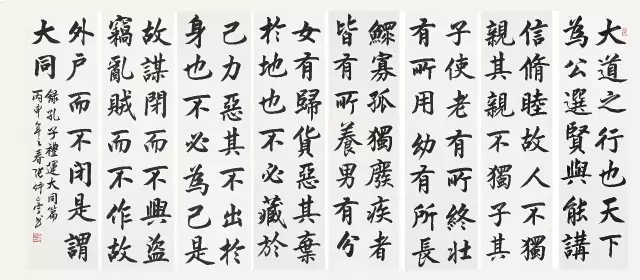 大道之行也天下
為公選賢與能講
信脩睦故人不獨
親其親不獨子其
子使老有所終壯
有所用幼有所長
鰥寡孤獨廢疾者
皆有所養男有分
女有歸貨惡其棄
於地也不必藏於
己力惡其不出於
身也不必為己是
故謀閉而不興盜
竊亂賊而不作故
外戶而不閉是謂
大同
錄孔子禮運大同篇
丙申年之春張仲亭书